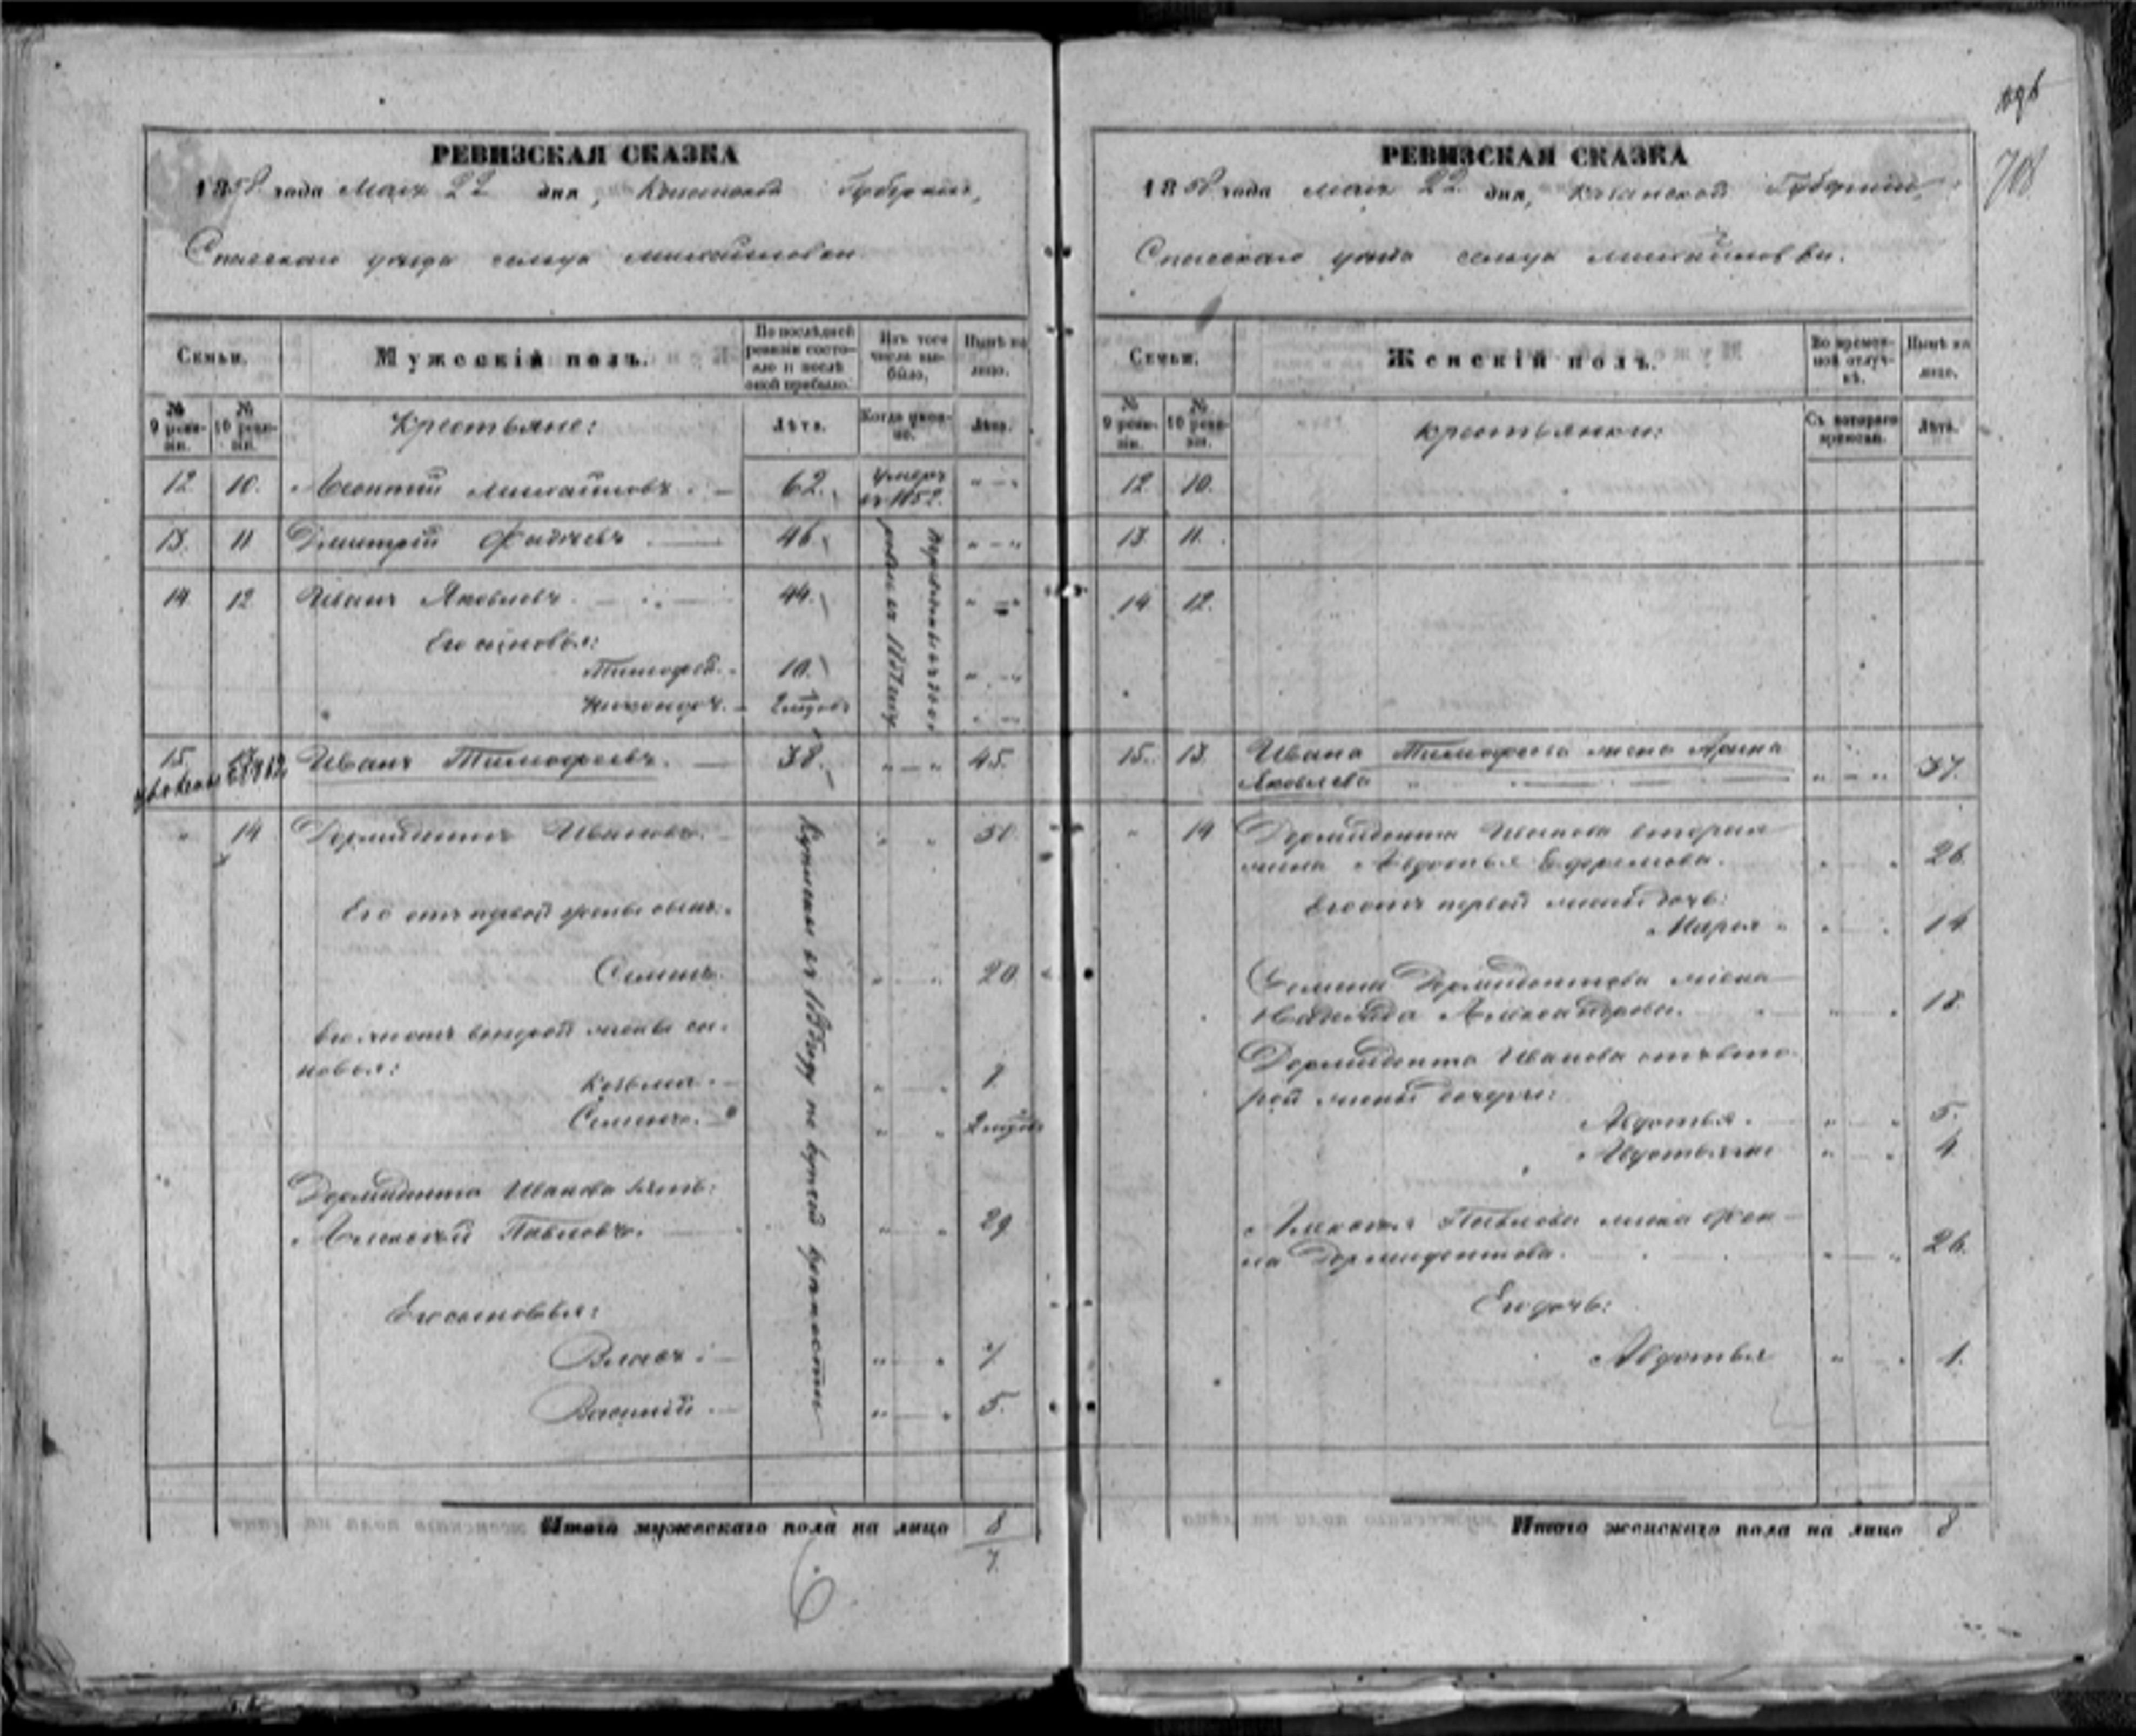 РЕВИЗСКАЯ СКАЗКА
1858 года Мая 22 дня, Казанской Губернии,
Спасскаго уезда сельца Михайловки
Семьи.
Мужескій полъ.
По послѣдней ревизіи состояло и послѣ оной прибыло.
Изъ того числа выбыло,
Нынѣ на лицо.
№ 9 ревизіи.
№ 10 ревизіи.
Крестьяне:
Лѣта.
Когда именно.
Лѣта.
12 10. Леонтий Михайловъ. 62. умеръ въ 1852.
13. 11 Дмитрій Фадѣевъ 46.
14 12 Иванъ Яковлевъ 44.
Его сыновья:
Тимофей. 10.
Никоноръ. 2 мѣсяцовъ
15 Иванъ Тимофеевъ. 38. 45.
14 Дормидонтъ Ивановъ. 50
Его отъ первой жены сынъ.
Семенъ. 20
Его же отъ второй жены сыновья:
Козьма. 7.
Семенъ. 2 мѣсяц
Дормидонта Иванова зять:
Алексей Павловъ. 29
Его сыновья:
Власъ: 7
Василій 5.
Куплены въ 185 году по купчей крепости
Итого мужескаго пола на лицо 8
7
6
708
РЕВИЗСКАЯ СКАЗКА
1858 года мая 22 дня, Казанской Губернии,
Спасскаго уезда сельца Михайловки.
Семьи.
Женскій полъ.
Во временной отлучкѣ.
Нынѣ на лицо.
№ 9 ревизіи.
№ 10 ревизіи.
крестьянки:
Съ котораго времени.
Лѣта.
12 10.
13. 11.
14 12.
15. 13. Ивана Тимофеева жена Арина
Яковлева 37.
14 Дормидонта Иванова вторая
жена Авдотья Ефремова. 26
Его отъ первой жены дочь:
Марья 14
Семена Дормидонтова жена
Надежда Александрова. 18.
Дормидонта Иванова отъ второй
жены дочери:
Авдотья. 5.
4
Алексея Павлова жена Фекла
Дормидонтова. 26.
Его дочь:
Авдотья 1.
Итого женскаго пола на лицо 8